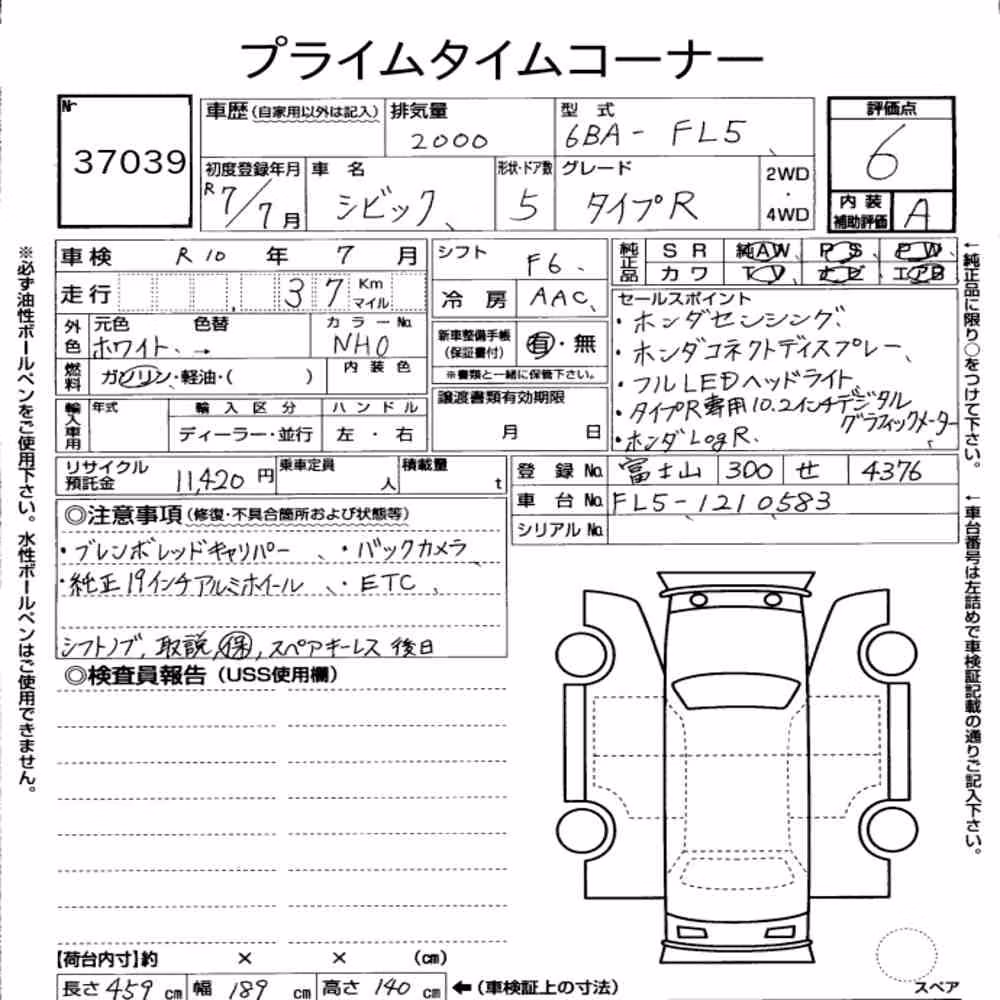 プライムタイムコーナー
Nr 37039
車歴(自家用以外は記入)
排気量 2000
型式 6BA- FL5
評価点 6
初度登録年月 R7/7月
車名 シビック
形状・ドア数 5
グレード タイプR
2WD・4WD
内装補助評価 A
車検 R10年 7月
シフト F6
純正品 SR 純AW PS PW
カワ TV ナビ エアB
走行 37 Kmマイル
冷房 AAC
外色 元色 色替 カラーNo.
ホワイト → NH0
新車整備手帳(保証書付) 有・無
※書類と一緒に保管下さい。
燃料 ガソリン・軽油・( ) 内装色
セールスポイント
・ホンダセンシング
・ホンダコネクトディスプレー
・フルLEDヘッドライト
・タイプR専用10.2インチデジタル
グラフィックメーター
・ホンダLogR
輸入車用 年式 輸入区分 ハンドル
ディーラー・並行 左・右
譲渡書類有効期限
月 日
リサイクル預託金 11,420円
乗車定員 人
積載量 t
登録No. 富士山 300 せ 4376
車台No. FL5-1210583
シリアルNo.
◎注意事項(修復・不具合箇所および状態等)
・ブレンボレッドキャリパー ・バックカメラ
・純正19インチアルミホイール ・ETC
シフトノブ, 取説, 保, スペアキーレス 後日
◎検査員報告(USS使用欄)
【荷台内寸】約 × × (cm)
長さ 459 cm 幅 189 cm 高さ 140 cm ←(車検証上の寸法)
スペア
※必ず油性ボールペンをご使用下さい。水性ボールペンはご使用できません。
←純正品に限り○をつけて下さい。
←車台番号は左詰めで車検証記載の通りご記入下さい。